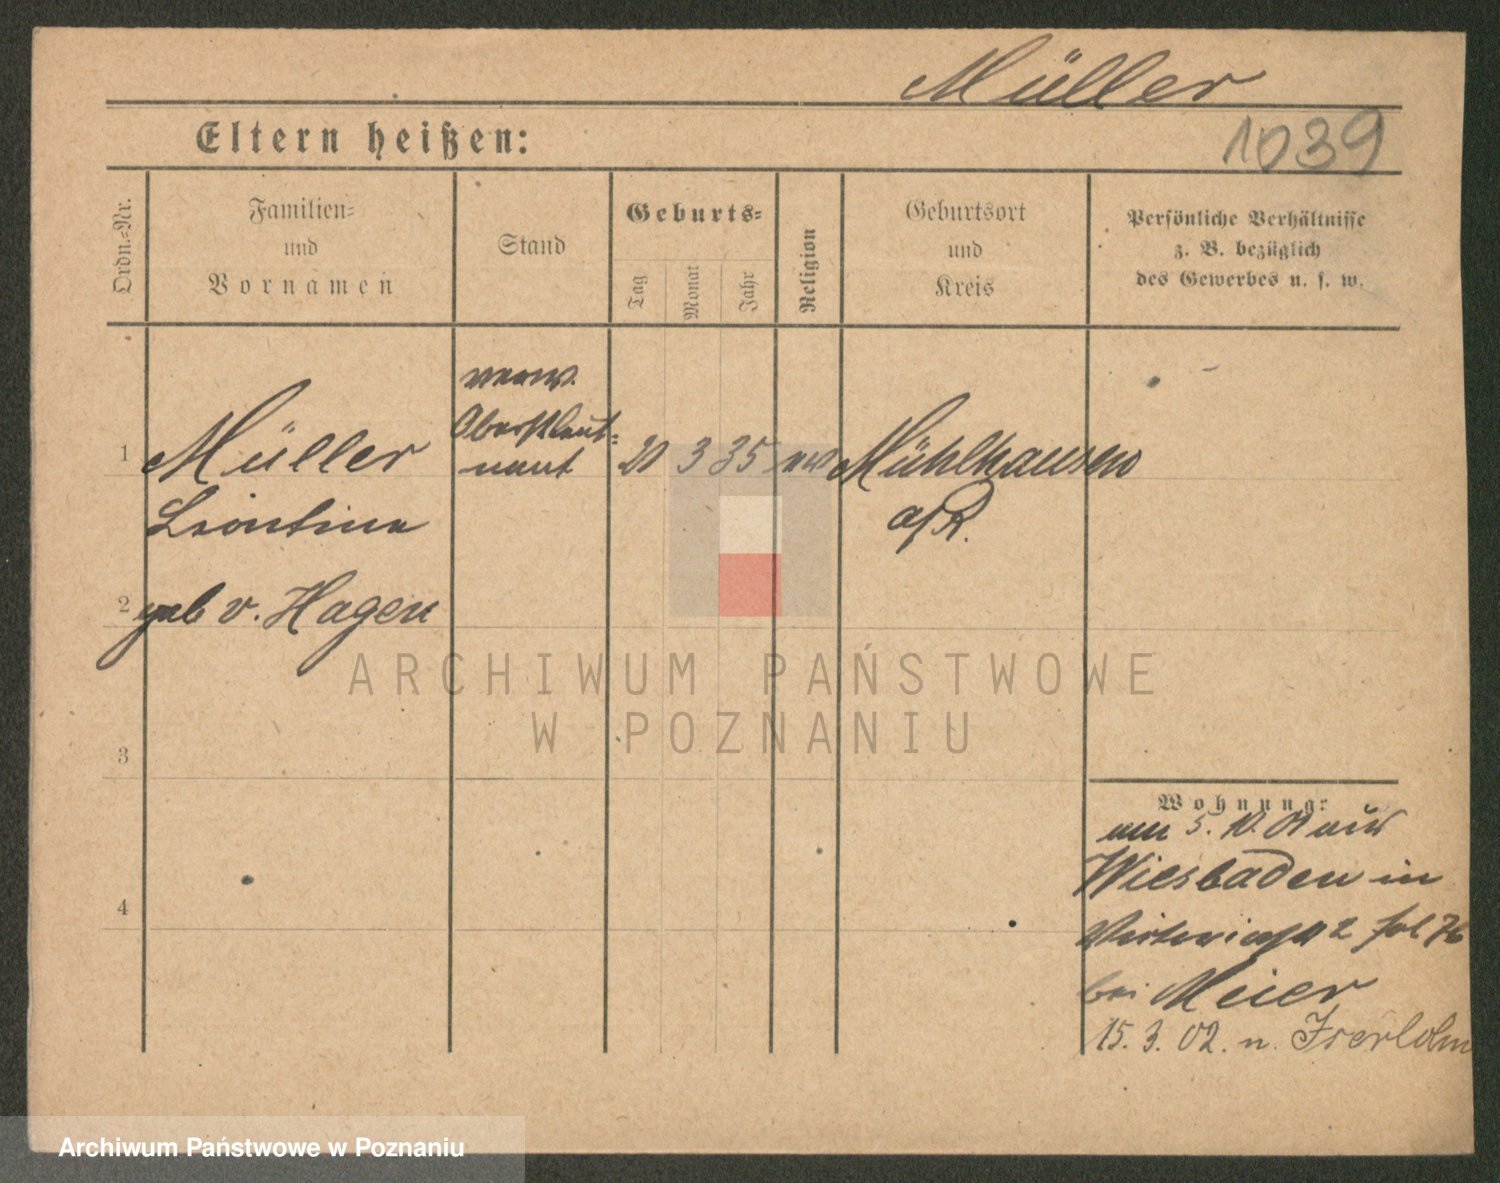 Müller
1039
Eltern heißen:
Ordn.-Nr.
Familien-
und
Vornamen
Stand
Geburts-
Tag
Monat
Jahr
Religion
Geburtsort
und
Kreis
Persönliche Verhältnisse
z. B. bezüglich
des Gewerbes u. s. w.
verw.
Oberstleut-
nant
1
Müller
20 3 35 ev
Mühlhausen
a/R.
Leontine
2
geb v. Hagen
ARCHIWUM PAŃSTWOWE
W POZNANIU
3
Wohnung:
am 5. 10. 01 aus
Wiesbaden in
4
2 fol 76
bei Meier
15. 3. 02. n. Iserlohn
Archiwum Państwowe w Poznaniu